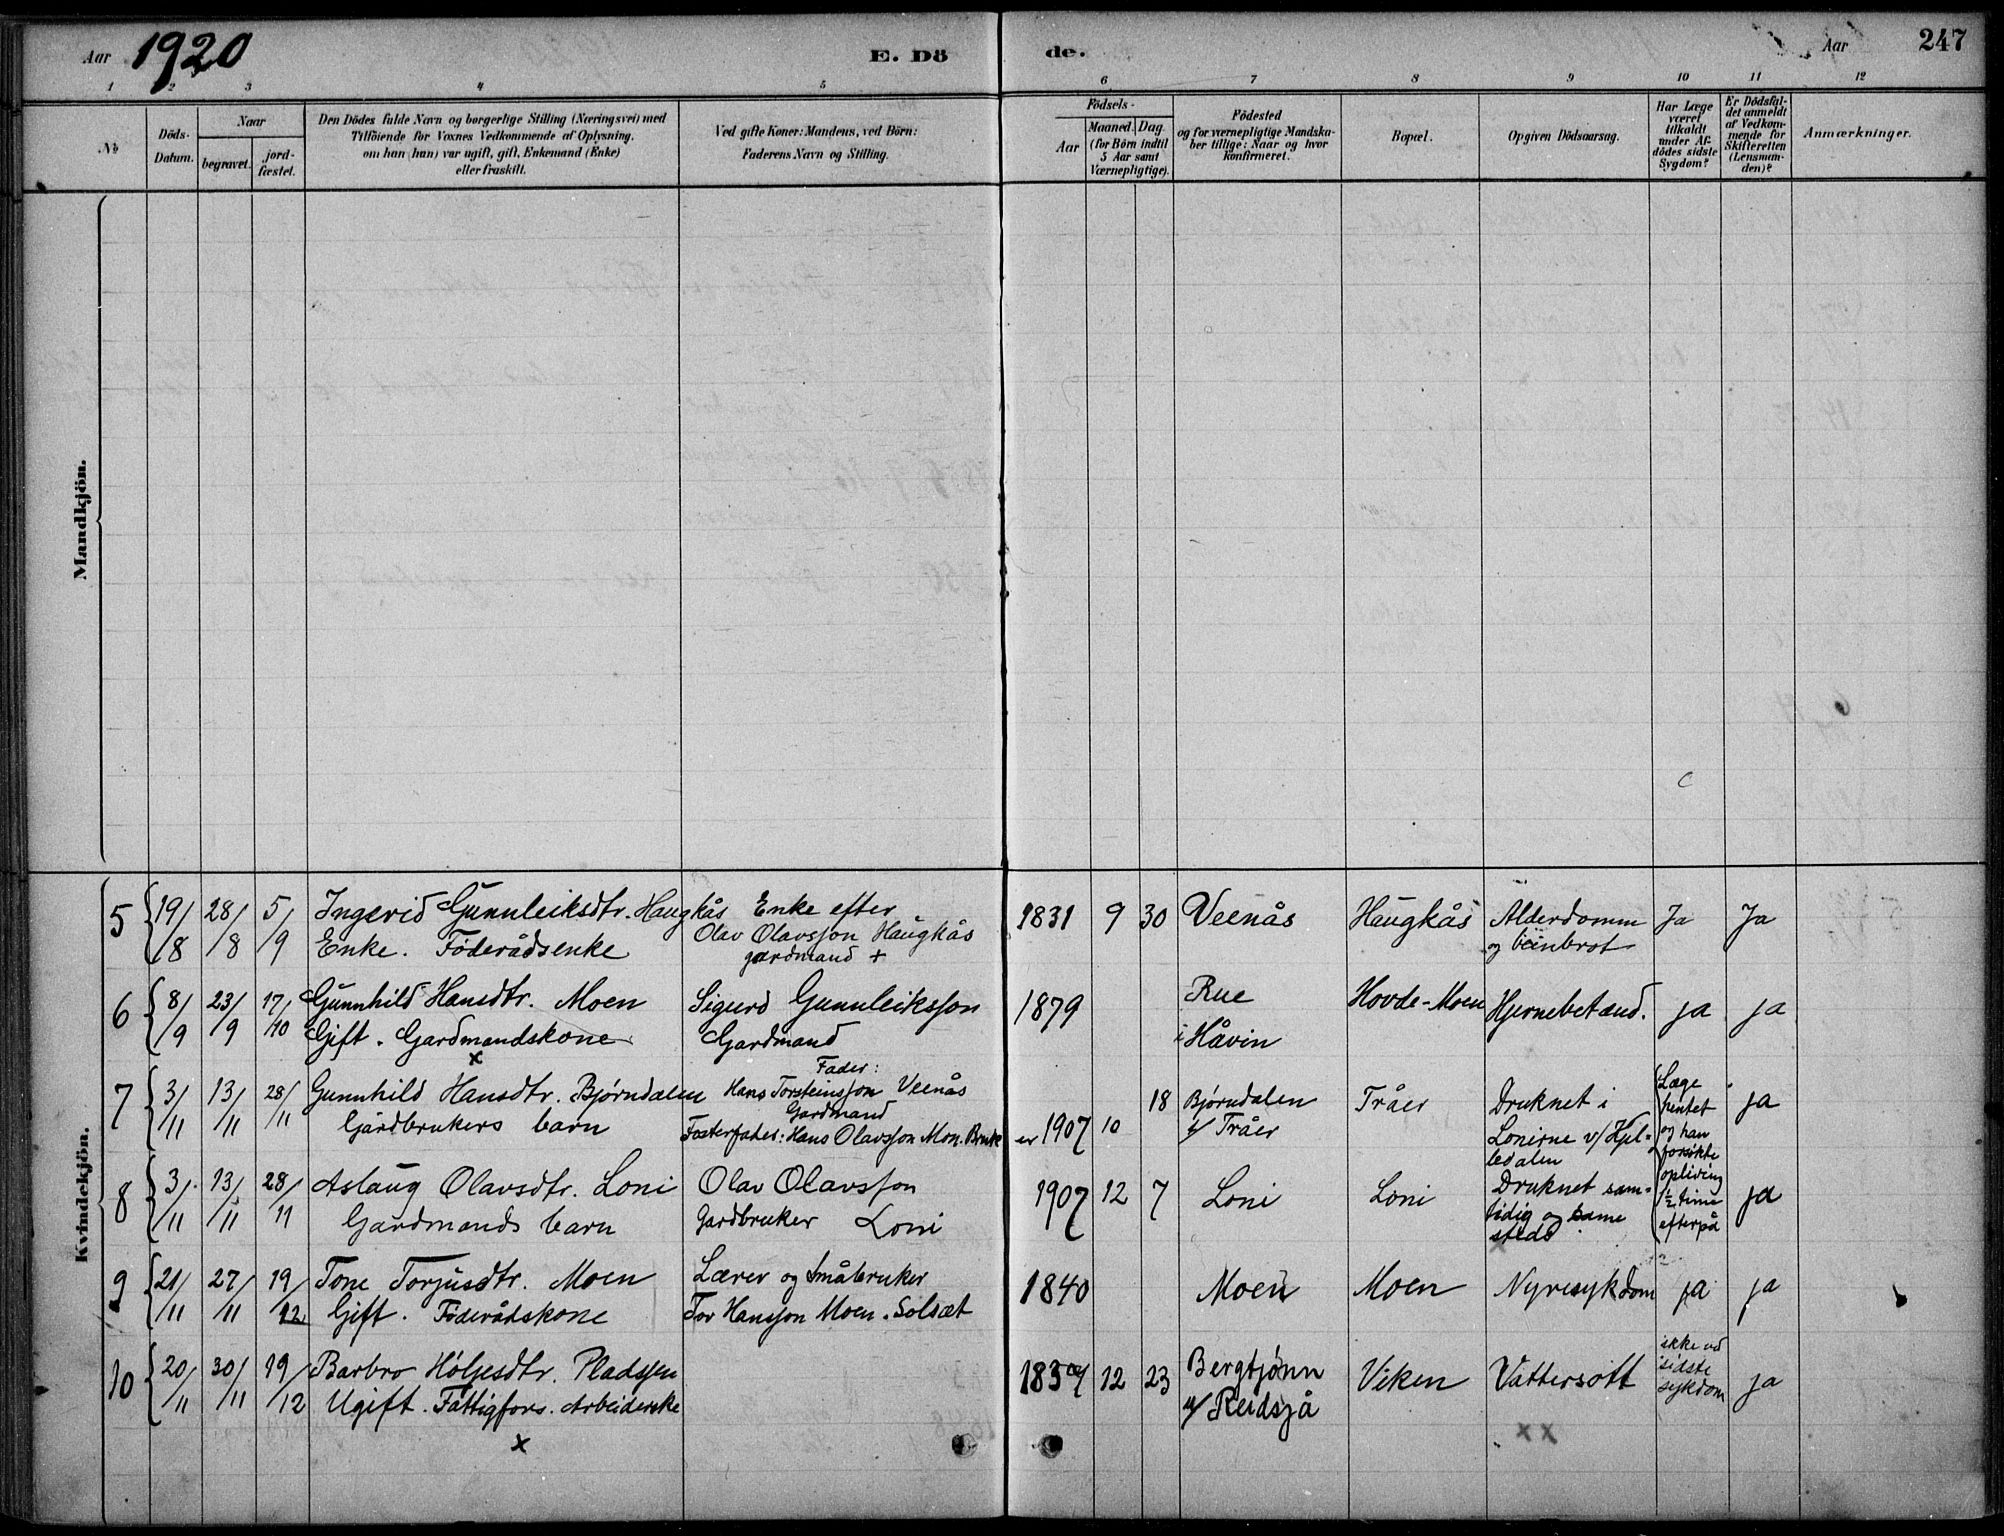 Aar 1920
E. Dö
de.
Aar
247
1 2 3 4 5 6 7 8 9 10 11 12
№
Döds-
Datum.
Naar
begravet.
jord-
fæstet.
Den Dödes fulde Navn og borgerlige Stilling (Næringsvei) med
Tilföiende for Voxnes Vedkommende af Oplysning.
om han (hun) var ugift, gift, Enkemand (Enke)
eller fraskilt.
Ved gifte Koner: Mandens, ved Börn:
Faderens Navn og Stilling.
Födsels-
Aar
Maaned. Dag
(for Börn indtil
5 Aar samt
Værnepligtige).
Födested
og for værnepligtige Mandska-
ber tillige: Naar og hvor
konfirmeret.
Bopæl.
Opgiven Dödsaarsag.
Har Læge
været
tilkaldt
under Af-
dödes sidste
Sygdom?
Er Dödsfal-
det anmeldt
af Vedkom-
mende for
Skifteretten
(Lensman-
den)?
Anmærkninger.
Mandkjön.
Kvindekjön.
5
19/8
28/8
5/9
Ingerid Gunnleiksdtr. Haugkås
Enke. Føderådsenke
Enke efter
Olav Olavsson Haugkås
gardmand +
1831
9
30
Veenås
Haugkås
Alderdomm
og beinbrot
Ja
Ja
6
8/9
23/9
17/10
Gunnhild Hansdtr. Moen
Gift. Gardmandskone
x
Sigurd Gunnleiksson
Gardmand
1879
Rue
i Håvin
Hovde-Moen
Hjernebetænd.
ja
ja
7
3/11
13/11
28/11
Gunnhild Hansdtr. Bjørndalen
Gårdbrukers barn
Fader:
Hans Torsteinsson Veenås
Gardmand
Fosterfader: Hans Olavsson
1907
10
18
Bjørndalen
u/ Tråer
Tråer
Druknet i
Lonirne v/ Hjel-
ledalen
Læge
hentet
og han
forsøkte
opliving
1½ time
efterpå
ja
8
3/11
13/11
28/11
Aslaug Olavsdtr. Loni
Gardmands barn
Olav Olavsson
Gardbruker Loni
1907
12
7
Loni
Loni
Druknet sam-
tidig og same
steds
x
ja
9
21/11
27/11
19/12
Tone Torjusdtr. Moen
Gift. Føderådskone
Lærer og Småbruker
Tor Hansson Moen. Solsæt
1840
Moen
Moen
Nyresykdom
ja
ja
10
20/11
30/11
19/12
Barbro Høljesdtr. Pladssen
Ugift. Fattigfors. Arbeiderske
x
12
23
Bergtjønn
u/ Reidsjå
Viken
Vattersott
xx
ikke ved
sidste
sykdom
ja